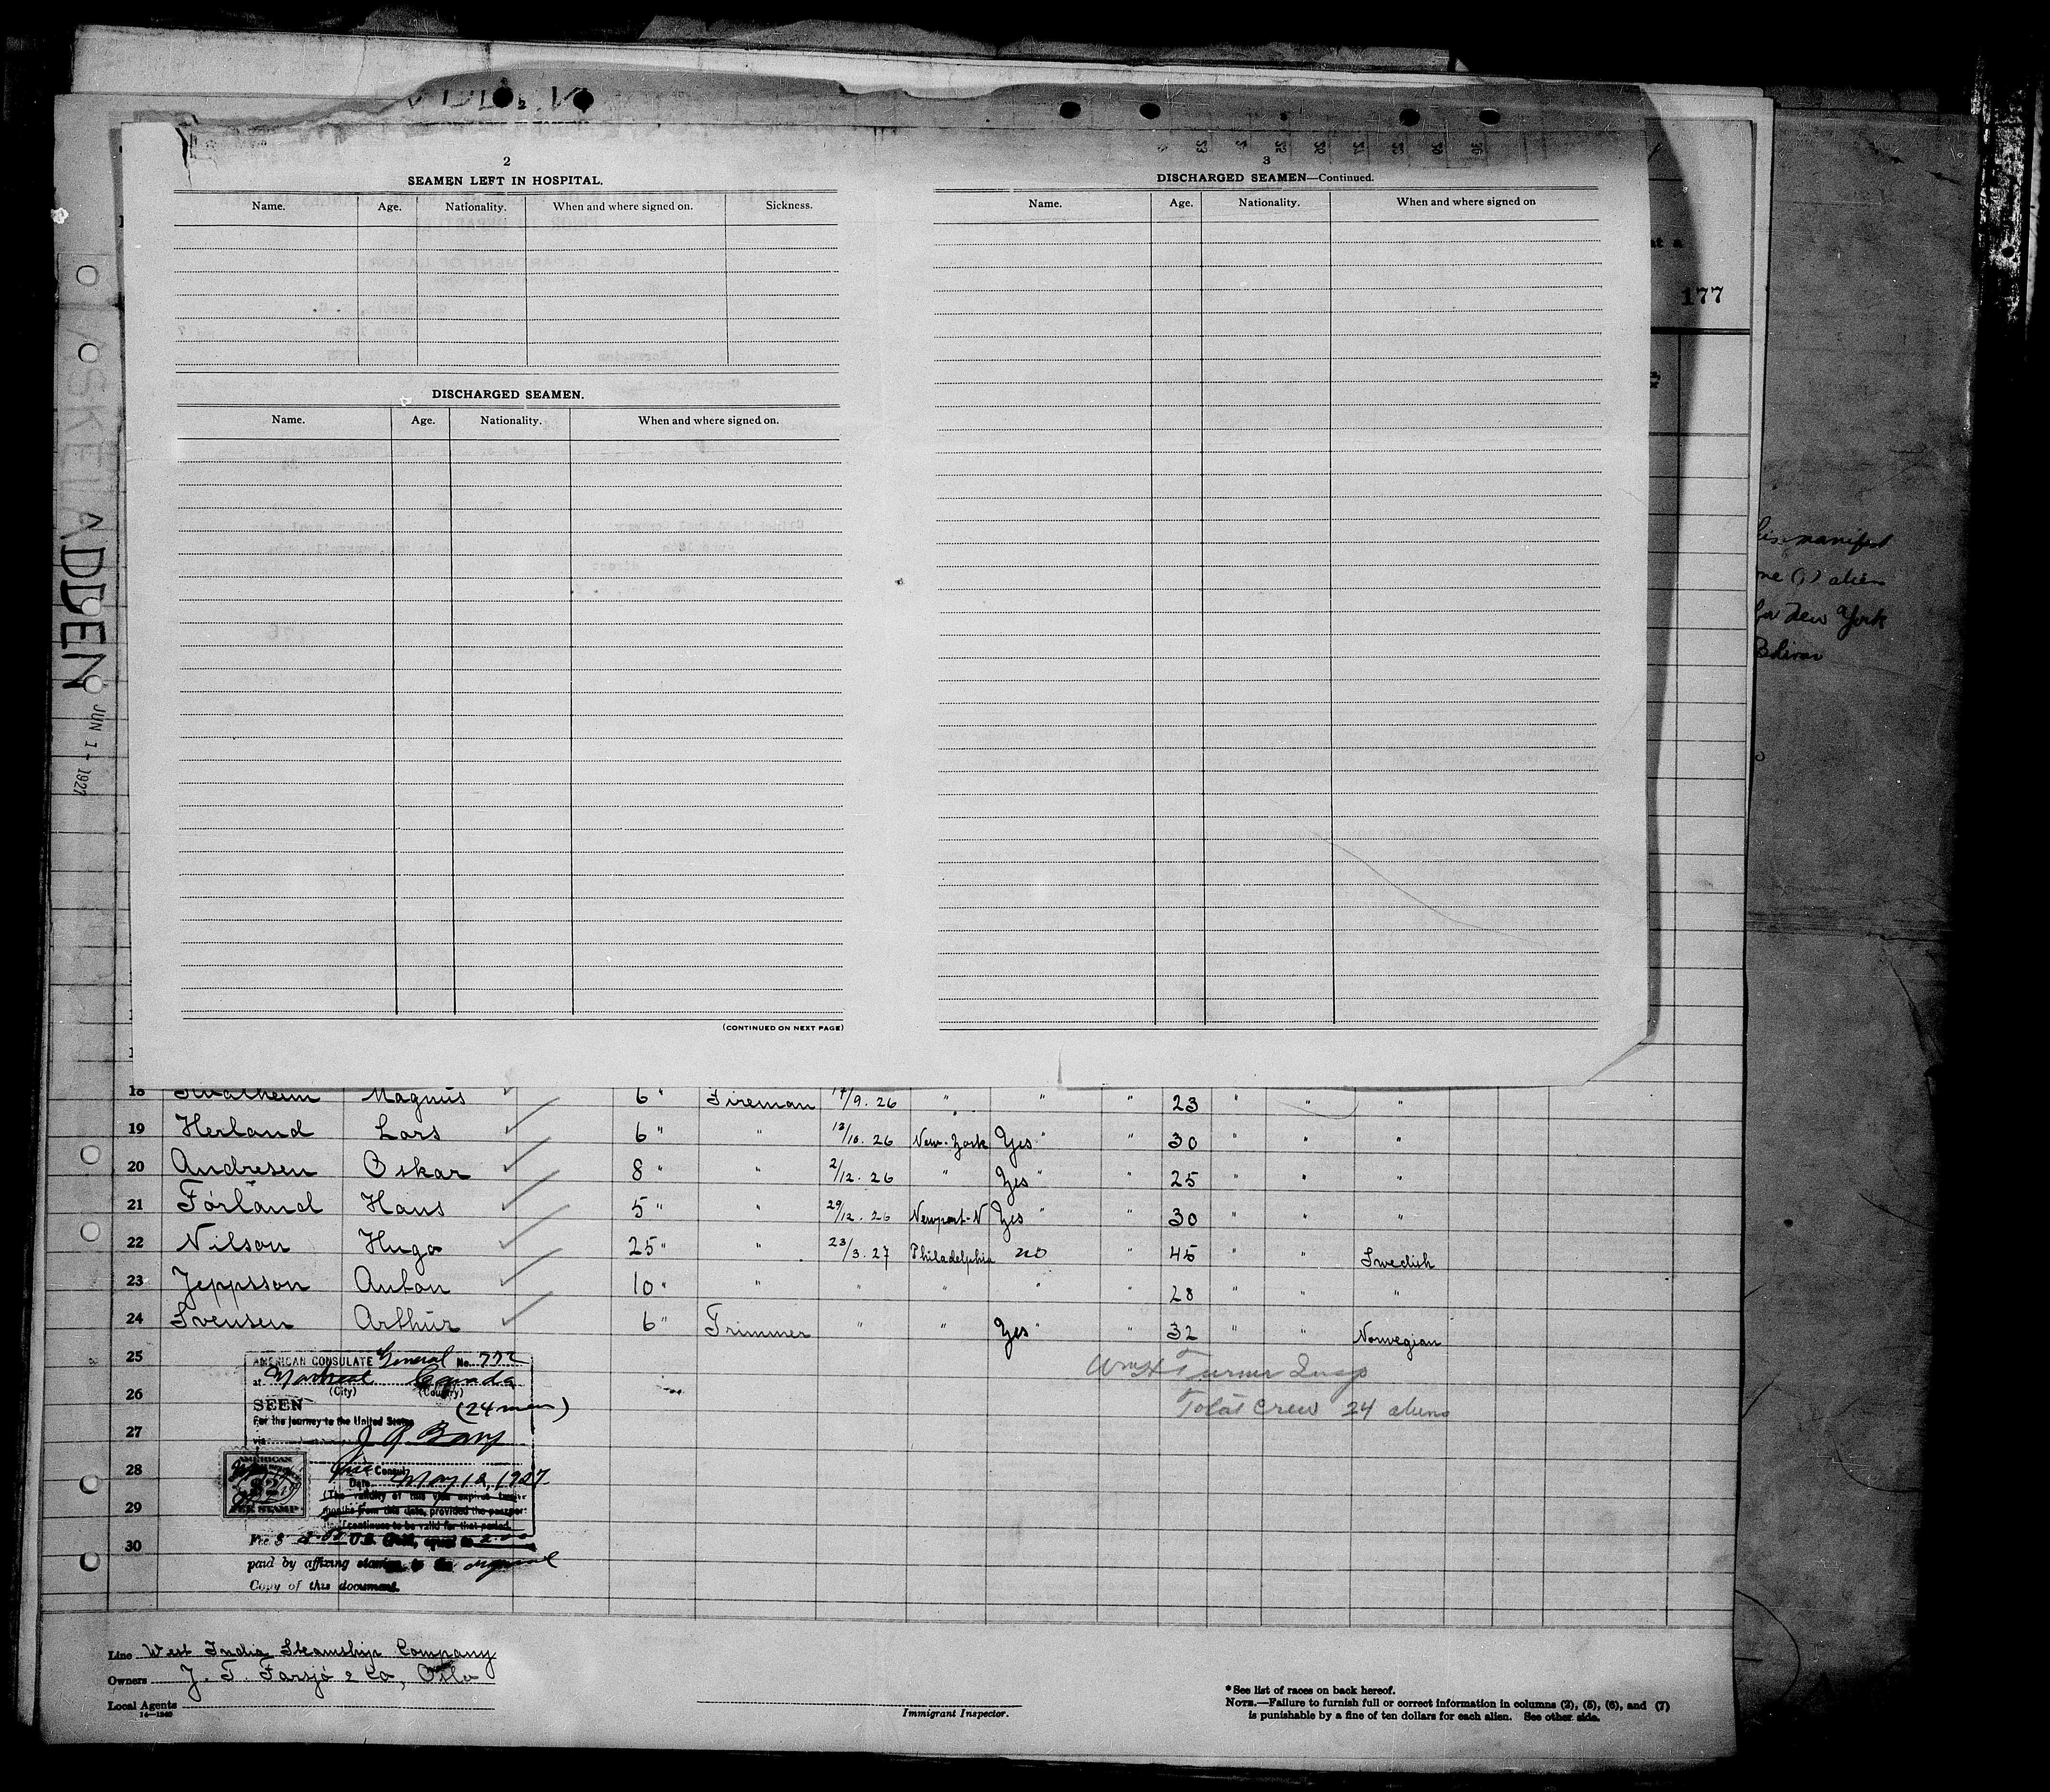 2
SEAMEN LEFT IN HOSPITAL.
Name. Age. Nationality. When and where signed on. Sickness.
DISCHARGED SEAMEN.
Name. Age. Nationality. When and where signed on.
(CONTINUED ON NEXT PAGE)
3
DISCHARGED SEAMEN—Continued.
Name. Age. Nationality. When and where signed on
177
ADDEN
JUN 1 - 1927
manifest
alien
for New York
18 Magnus 6 " Fireman 17/9. 26 " " " 23 " " "
19 Herland Lars 6 " " 13/10. 26 New-York Yes " " 30 " " "
20 Andresen Oskar 8 " " 2/12. 26 " Yes " " 25 " " "
21 Førland Hans 5 " " 29/12. 26 Newport-N Yes " " 30 " " "
22 Nilson Hugo 25 " " 23/3. 27 Philadelphia no " 45 " " Swedish
23 Jeppsson Anton 10 " " " " " " 28 " " "
24 Svensen Arthur 6 " Trimmer " " Yes " " 32 " " Norwegian
25
26
27
28
29
30
AMERICAN CONSULATE General No. 772
at Montreal Canada
(City) (Country)
SEEN (24 men)
For the journey to the United States
via
Vice Consul
Date May 12, 1927
(The validity of this visa expires twelve
months from this date, provided the passport
continues to be valid for that period.
AMERICAN
$2
FEE STAMP
Fee $ U.S. equal to
paid by affixing stamps to the original
Copy of this document.
Wm H Turner Insp
Total Crew 24 aliens
Line West India Steamship Company
Owners J. T. Farsjø & Co, Oslo
Local Agents
14—1240
Immigrant Inspector.
*See list of races on back hereof.
NOTE.—Failure to furnish full or correct information in columns (2), (5), (6), and (7)
is punishable by a fine of ten dollars for each alien. See other side.